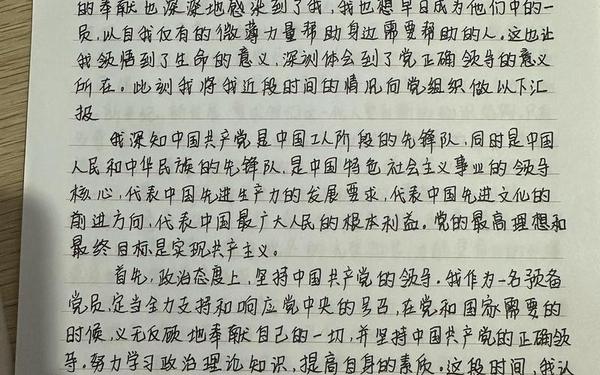 的奉献也深深地感染到了我，我也想早日成为他们中的一
员，以自我仅有的微薄力量帮助身边需要帮助的人。这也让
我领悟到了生命的意义，深训体会到了党正确领导的意义
所在。此刻我将我近段时间的情况向党组织做以下汇
报
我深知中国共产党是中国工人阶段的先锋队，同时是中国
人民和中华民族的先锋队，是中国特色社会主义事业的领导
核心，代表中国先进生产力的发展要求，代表中国先进文化的
前进方向，代表中国最广大人民的根本利益。党的最高理想和
最终目标是实现共产主义。
首先，政治态度上，坚持中国共产党的领导。我作为一名预备
党员，定当全力支持和响应党中央的号召，在党和国家需要的
时候，义无反顾地奉献自己的一切，并坚持中国共产党的正确领
导。努力学习政治理论知识，提高自身的素质。这段时间，我认